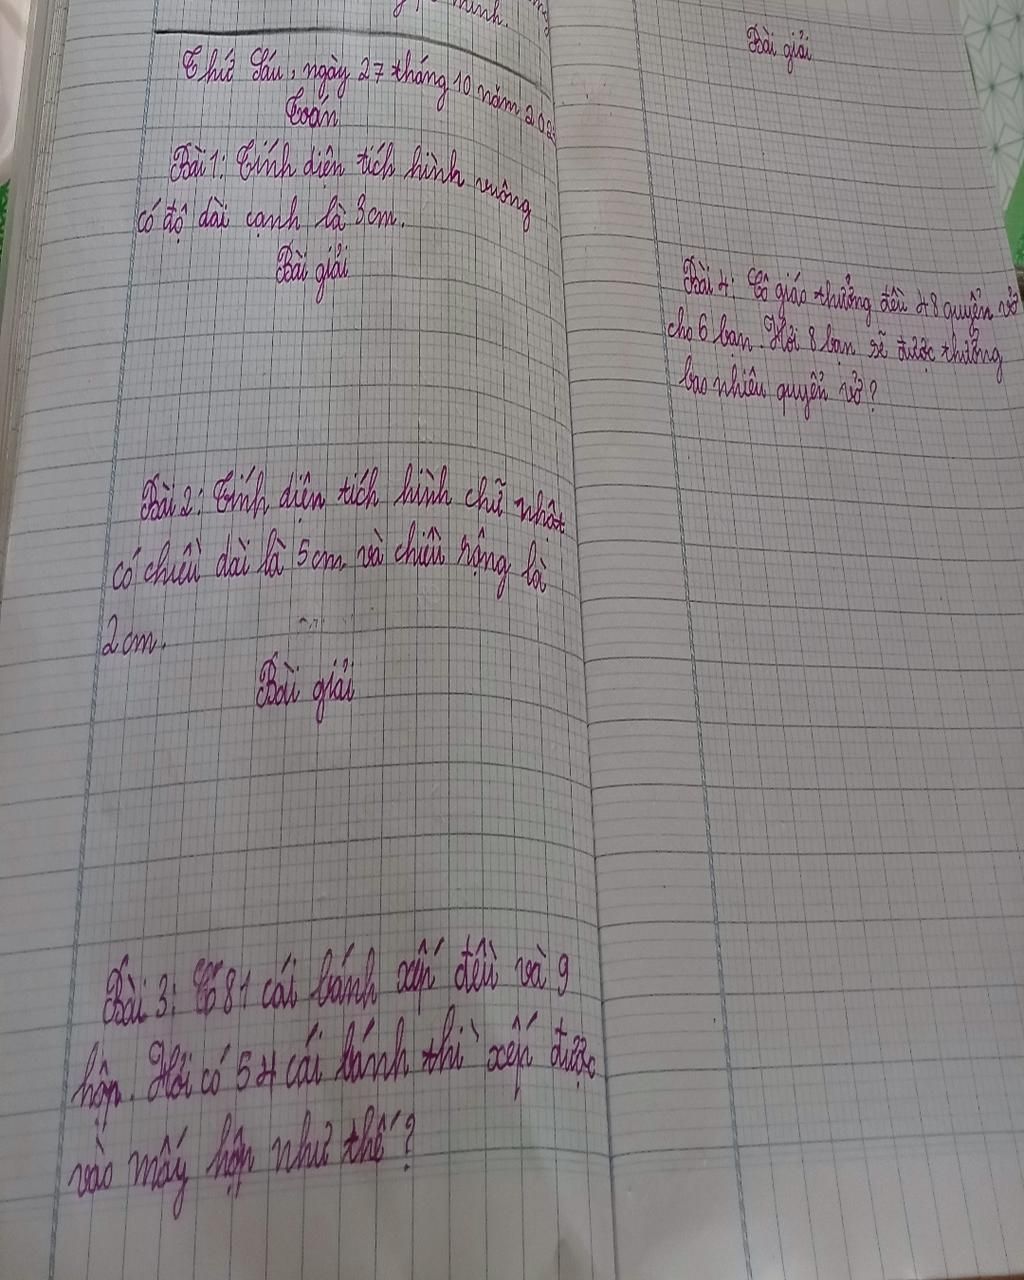 minh.
Thứ Sáu, ngày 27 tháng 10 năm 202
Toán
Bài 1: Tính diện tích hình vuông
có độ dài cạnh là 3cm.
Bài giải
Bài 2: Tính diện tích hình chữ nhật
có chiều dài là 5cm và chiều rộng là
2cm.
Bài giải
Bài 3: Có 81 cái bánh xếp đều và 9
hộp. Hỏi có 54 cái bánh thì xếp được
vào mấy hộp như thế?
Bài giải
Bài 4: Cô giáo thưởng đều 48 quyển vở
cho 6 bạn. Hỏi 8 bạn sẽ được thưởng
bao nhiêu quyển vở?